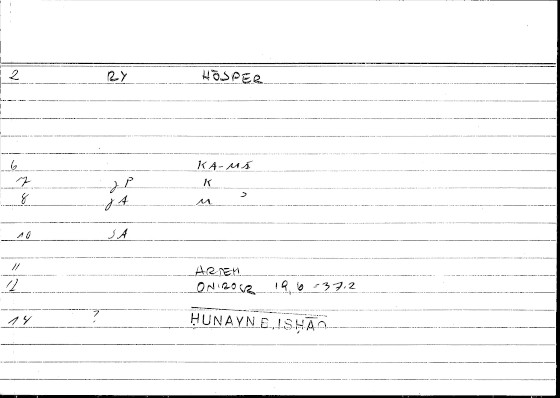 2 RY HŌSPER
6 KA-MS
7 gP K
8 gA M ʾ
10 SA
11 ARTEM
12 ONIROCR 19,6 - 37.2
14 ? ḤUNAYN B. ISḤĀQ